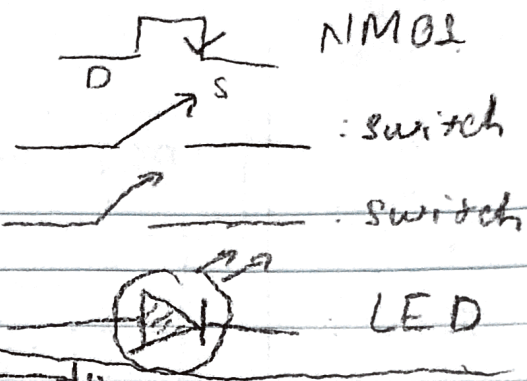 NMOS
D
S
: switch
. switch
LED